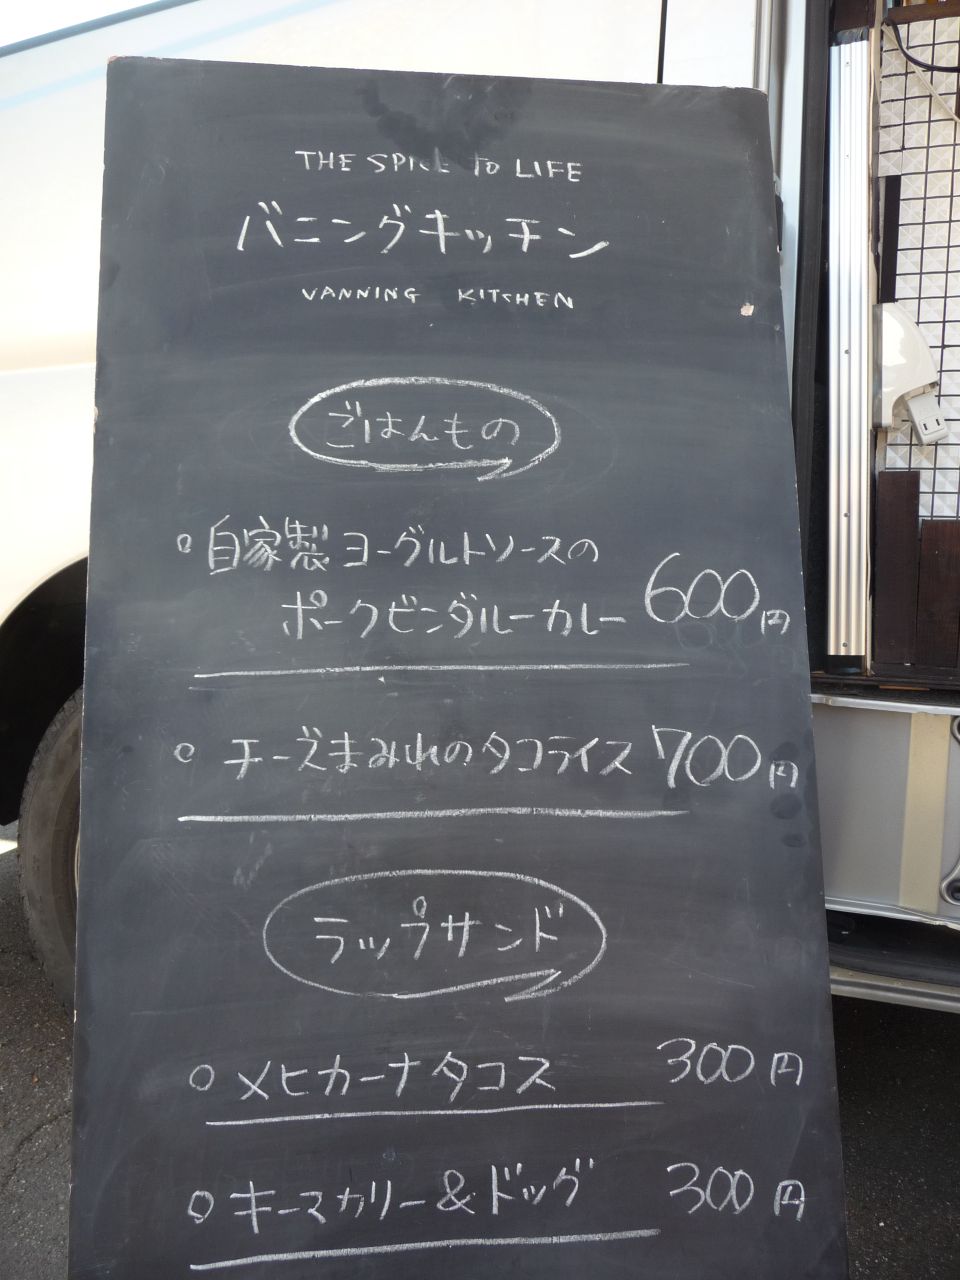 THE SPICE TO LIFE
バニングキッチン
VANNING KITCHEN
ごはんもの
○自家製ヨーグルトソースの
ポークビンダルーカレー 600円
○チーズまみれのタコライス 700円
ラップサンド
○メヒカーナタコス 300円
○キーマカリー&ドッグ 300円